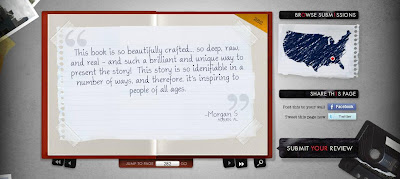 This book is so beautifully crafted... so deep, raw,
and real - and such a brilliant and unique way to
present the story! This story is so idenifiable in a
number of ways, and therefore, it's inspiring to
people of all ages.
-Morgan S
BROWSE SUBMISSIONS
SHARE THIS PAGE
Post this to your wall
Facebook
Tweet this page now
Twitter
SUBMIT YOUR REVIEW
JUMP TO PAGE